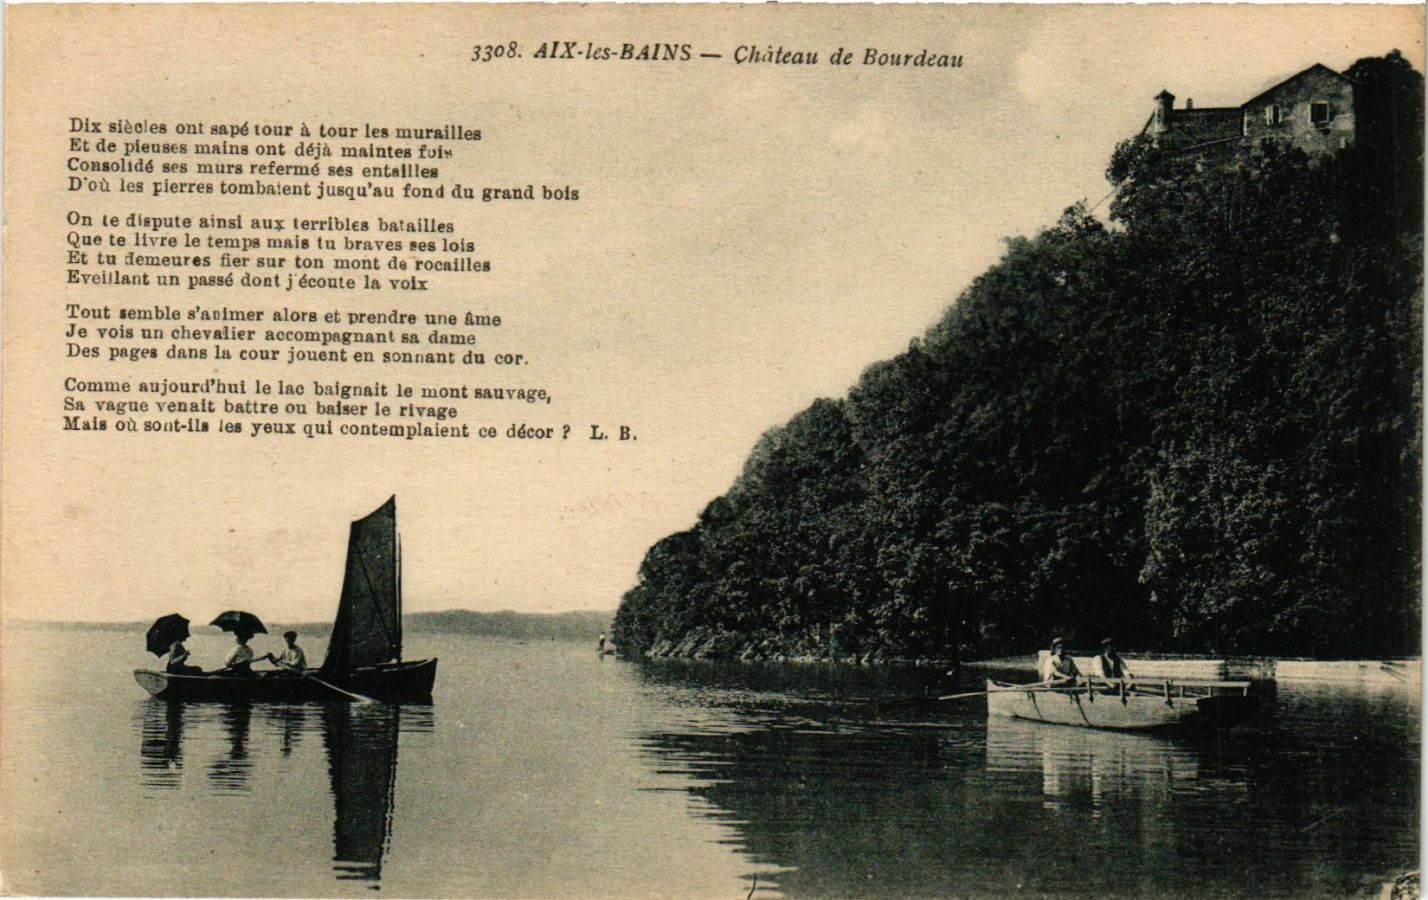 3308. AIX-les-BAINS — Château de Bourdeau
Dix siècles ont sapé tour à tour les murailles
Et de pieuses mains ont déjà maintes fois
Consolidé ses murs refermé ses entailles
D'où les pierres tombaient jusqu'au fond du grand bois
On te dispute ainsi aux terribles batailles
Que te livre le temps mais tu braves ses lois
Et tu demeures fier sur ton mont de rocailles
Eveillant un passé dont j'écoute la voix
Tout semble s'animer alors et prendre une âme
Je vois un chevalier accompagnant sa dame
Des pages dans la cour jouent en sonnant du cor.
Comme aujourd'hui le lac baignait le mont sauvage,
Sa vague venait battre ou baiser le rivage
Mais où sont-ils les yeux qui contemplaient ce décor ? L. B.